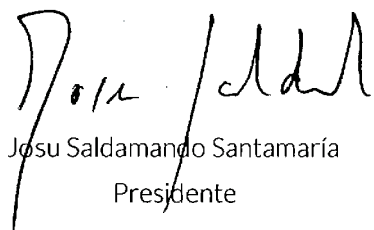 Josu Saldamando Santamaría
Presidente